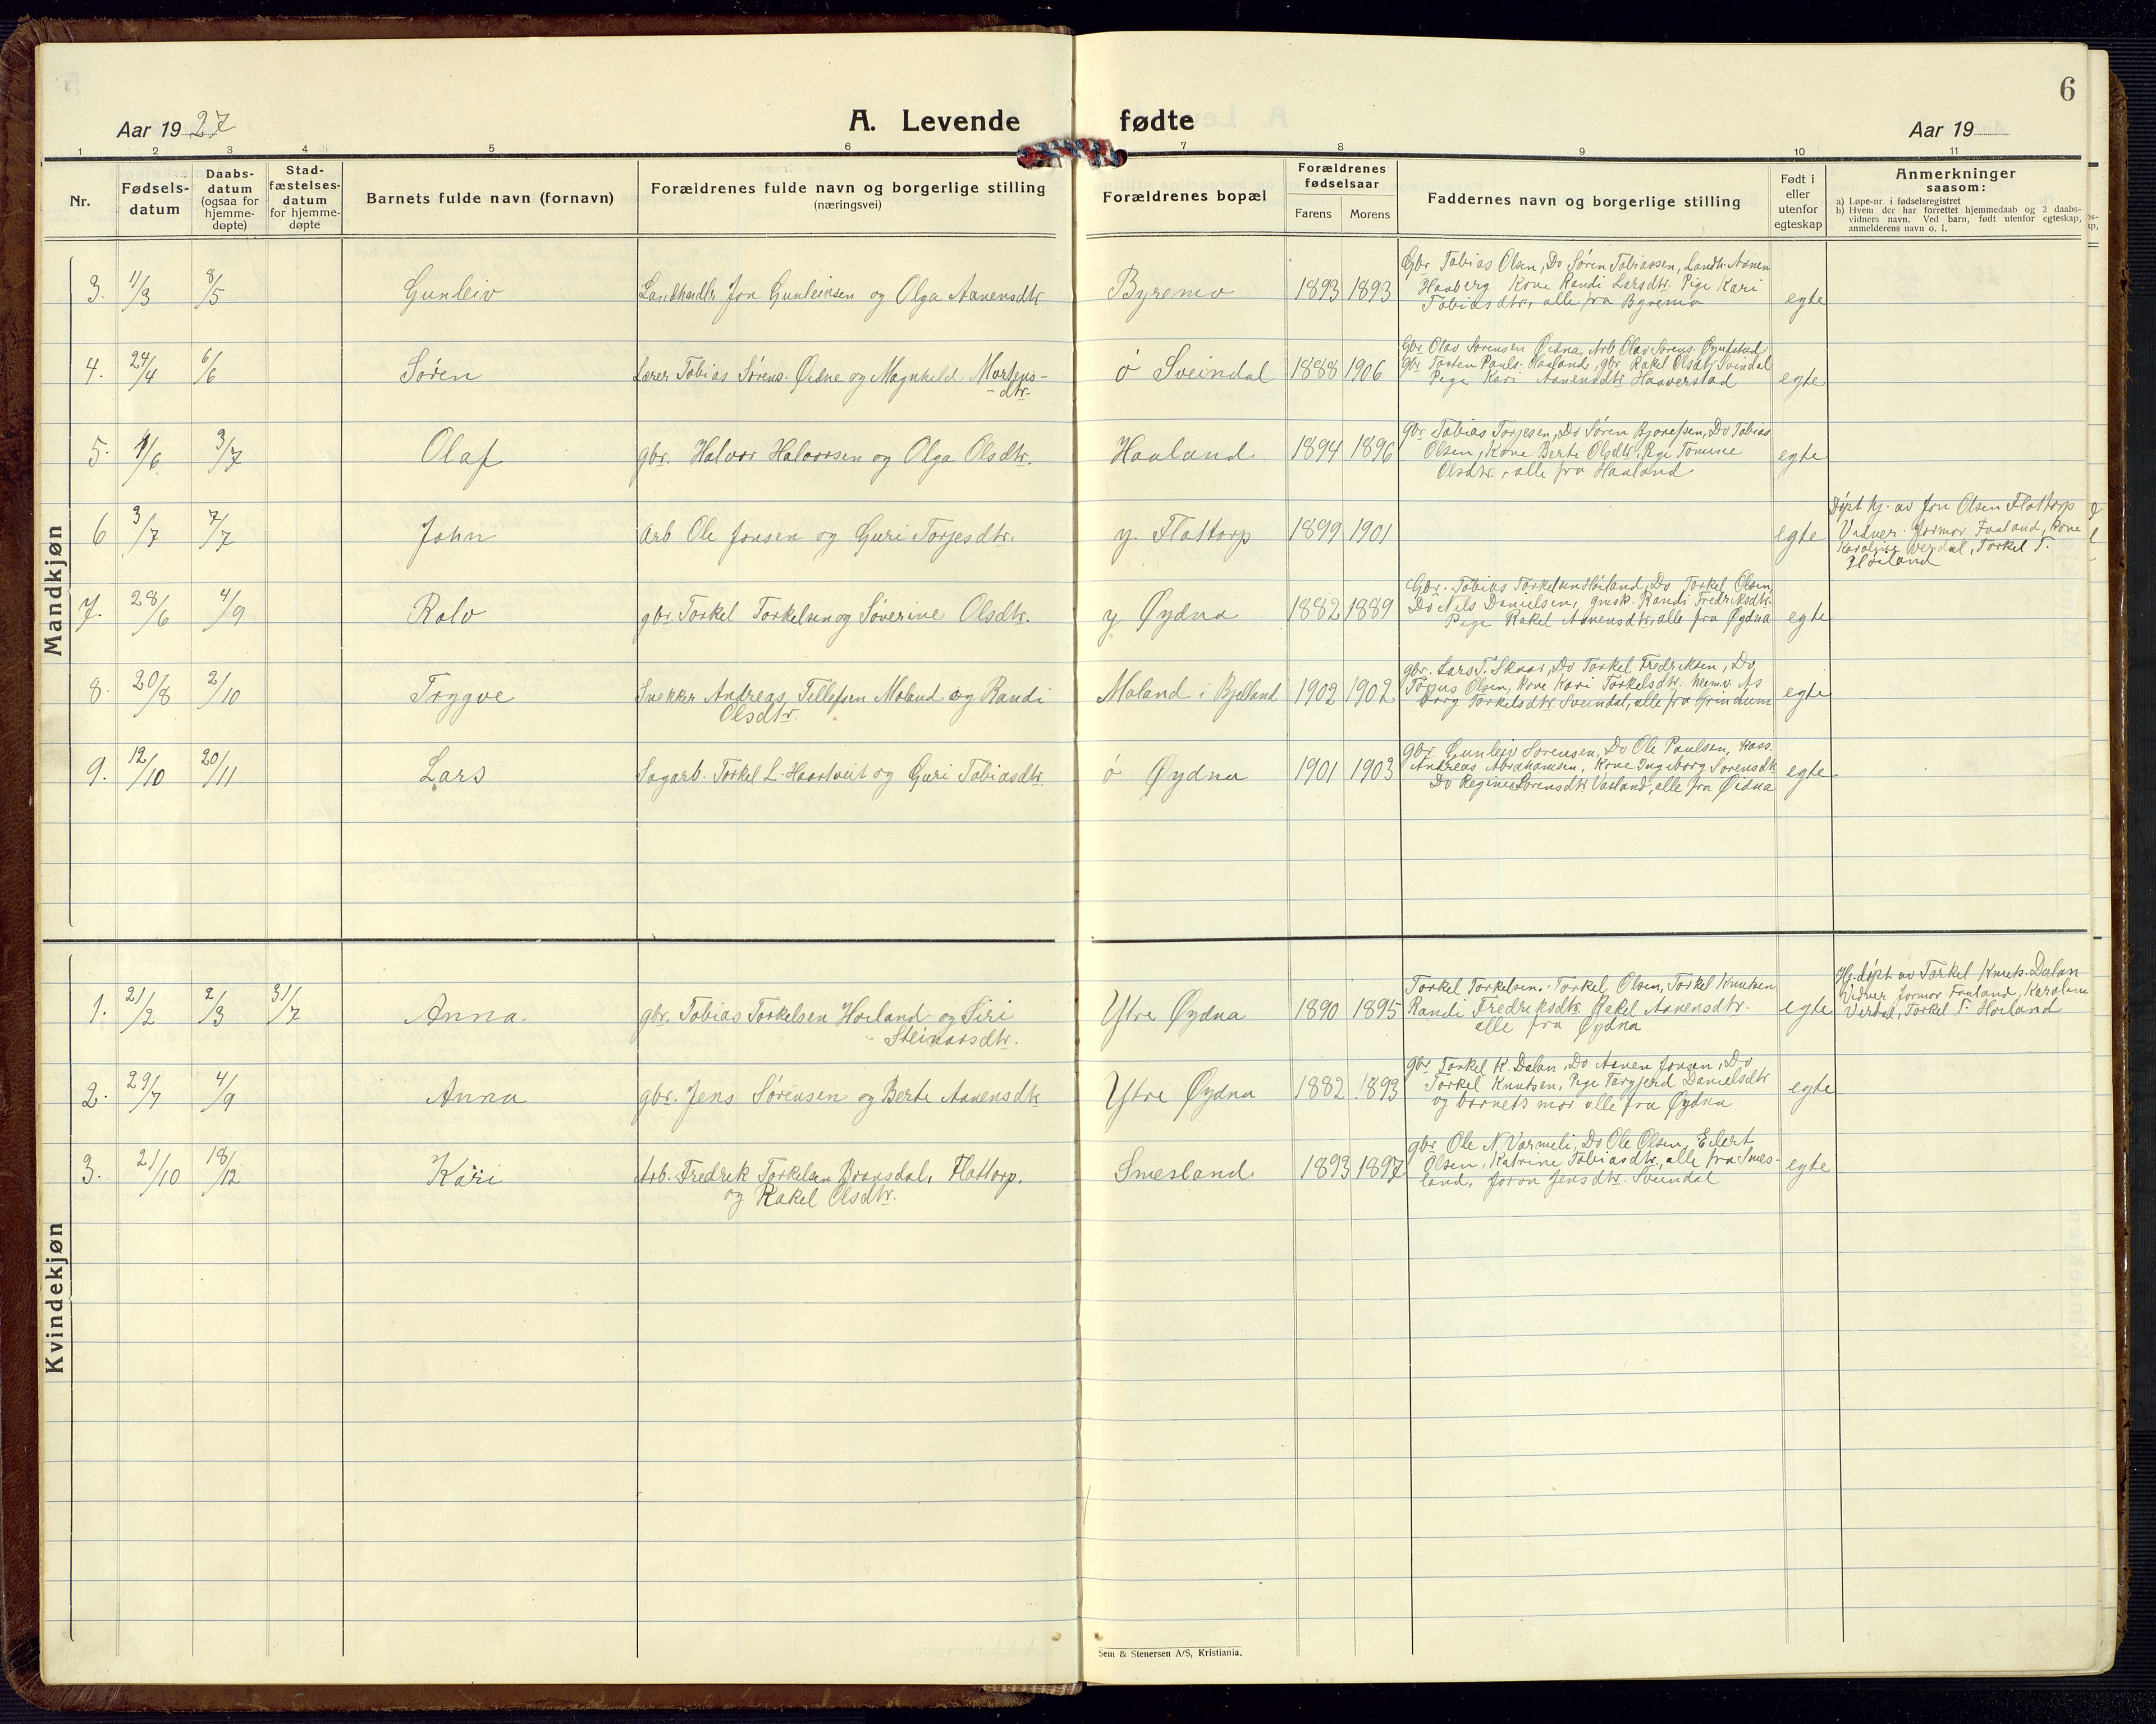 6
Aar 1927
A. Levende fødte
Aar 19
1 2 3 4 5 6 7 8 9 10 11
Nr.
Fødsels-
datum
Daabs-
datum
(ogsaa for
hjemme-
døpte)
Stad-
fæstelses-
datum
for hjemme-
døpte
Barnets fulde navn (fornavn)
Forældrenes fulde navn og borgerlige stilling
(næringsvei)
Forældrenes bopæl
Forældrenes
fødselsaar
Farens Morens
Faddernes navn og borgerlige stilling
Født i
eller
utenfor
egteskap
Anmerkninger
saasom:
a) Løpe-nr. i fødselsregistret
b) Hvem der har forrettet hjemmedaab og 2 daabs-
vidners navn. Ved barn, født utenfor egteskap,
anmelderens navn o. l.
Mandkjøn
3. 11/3 8/5 Gunleiv Landhandler Jon Gunleivsen og Olga Aanensdtr. Byremo 1893 1893 egte
Gbr Tobias Olsen, Do Søren Tobiassen, Landh. Aanen
Haaberg Kone Randi Larsdtr. Pige Kari
Tobiasdtr, alle fra Byremo
4. 24/4 6/6 Søren Lærer Tobias Sørens. Øidne og Magnhild Mortens-
dtr.
ø Sveindal 1888 1906 egte
Gbr Olav Sørensen Øidna, Arb Olav Sørens.
gbr Tosten Pauls. Haaland, gbr Rakel Olsdtr Svindal
Pige Kari Aanensdtr Haaverstad
5. 1/6 3/7 Olaf gbr. Halvor Halvorsen og Olga Olsdtr. Haaland 1894 1896 egte
gbr Tobias Torjesen, Do Søren Do Tobias
Olsen, Kone Berte Olsdtr, Pige Tomine
Olsdtr, alle fra Haaland
6 3/7 7/7 John Arb Ole Jonsen og Guri Torjesdtr. y. Flottorp 1899 1901 egte
Døpt hj. av Jon Olsen Flottorp
Vidner: Jormor Faaland, Kone
Karoline Verdal, Torkel T.
Høiland
7. 28/6 4/9 Rolv gbr. Torkel Torkelsen og Søverine Olsdtr. y Øydna 1882 1889 egte
Gbr. Tobias Torkelsen Høiland, Do Torkel Olsen,
Do Nils Danielsen, Randi Fredriksdtr.
Pige Rakel Aanensdtr, alle fra Øydna
8. 20/8 2/10 Trygve Snekker Andreas Tellefsen Moland og Randi
Olsdtr.
Moland i Bjelland 1902 1902 egte
gbr. Lars T. Skuar, Do Torkel Fredriksen, Do
Olsen, Kone Kari Torkelsdtr.
Torkelsdtr. Sveindal, alle fra Grindum
9. 12/10 20/11 Lars Sagarb. Torkel L. Haartveit og Guri Tobiasdtr. ø Øydna 1901 1903 egte
gbr. Gunleiv Sørensen, Do Ole Paulsen, Kass.
Andreas Abrahamsen, Kone Ingeborg Sørensdtr
Do Regine Sørensdtr Vasland, alle fra Øidna
Kvindekjøn
1. 21/2 2/3 31/7 Anna gbr. Tobias Torkelsen Høiland og Siri
Steinarsdtr.
Ytre Øydna 1890 1895 egte
Torkel Torkelsen, Torkel Olsen, Torkel Knutsen
Randi Fredriksdtr. Rakel Aanensdtr.
alle fra Øydna
Hj. døpt av Torkel Knuts. Dalan
Vidner Jormor Faaland, Karoline
Verdal, Torkel T. Høiland
2. 29/7 4/9 Anna gbr. Jens Sørensen og Berte Aanensdtr Ytre Øydna 1882 1893 egte
gbr. Torkel K. Dalan, Do Aanen Jonsen, Do
Torkel Knutsen, Pige Torgjerd Danielsdtr
og barnets mor alle fra Øydna
3. 21/10 18/12 Kari Arb. Fredrik Torkelsen Bronsdal, Flottorp.
og Rakel Olsdtr.
Smesland 1893 1897 egte
gbr Ole N. Varmeli, Do Ole Olsen, Eilert
Olsen, Katrine Tobiasdtr., alle fra Smes-
land, Joron Jensdtr. Sveindal
Sem & Stenersen A/S, Kristiania.